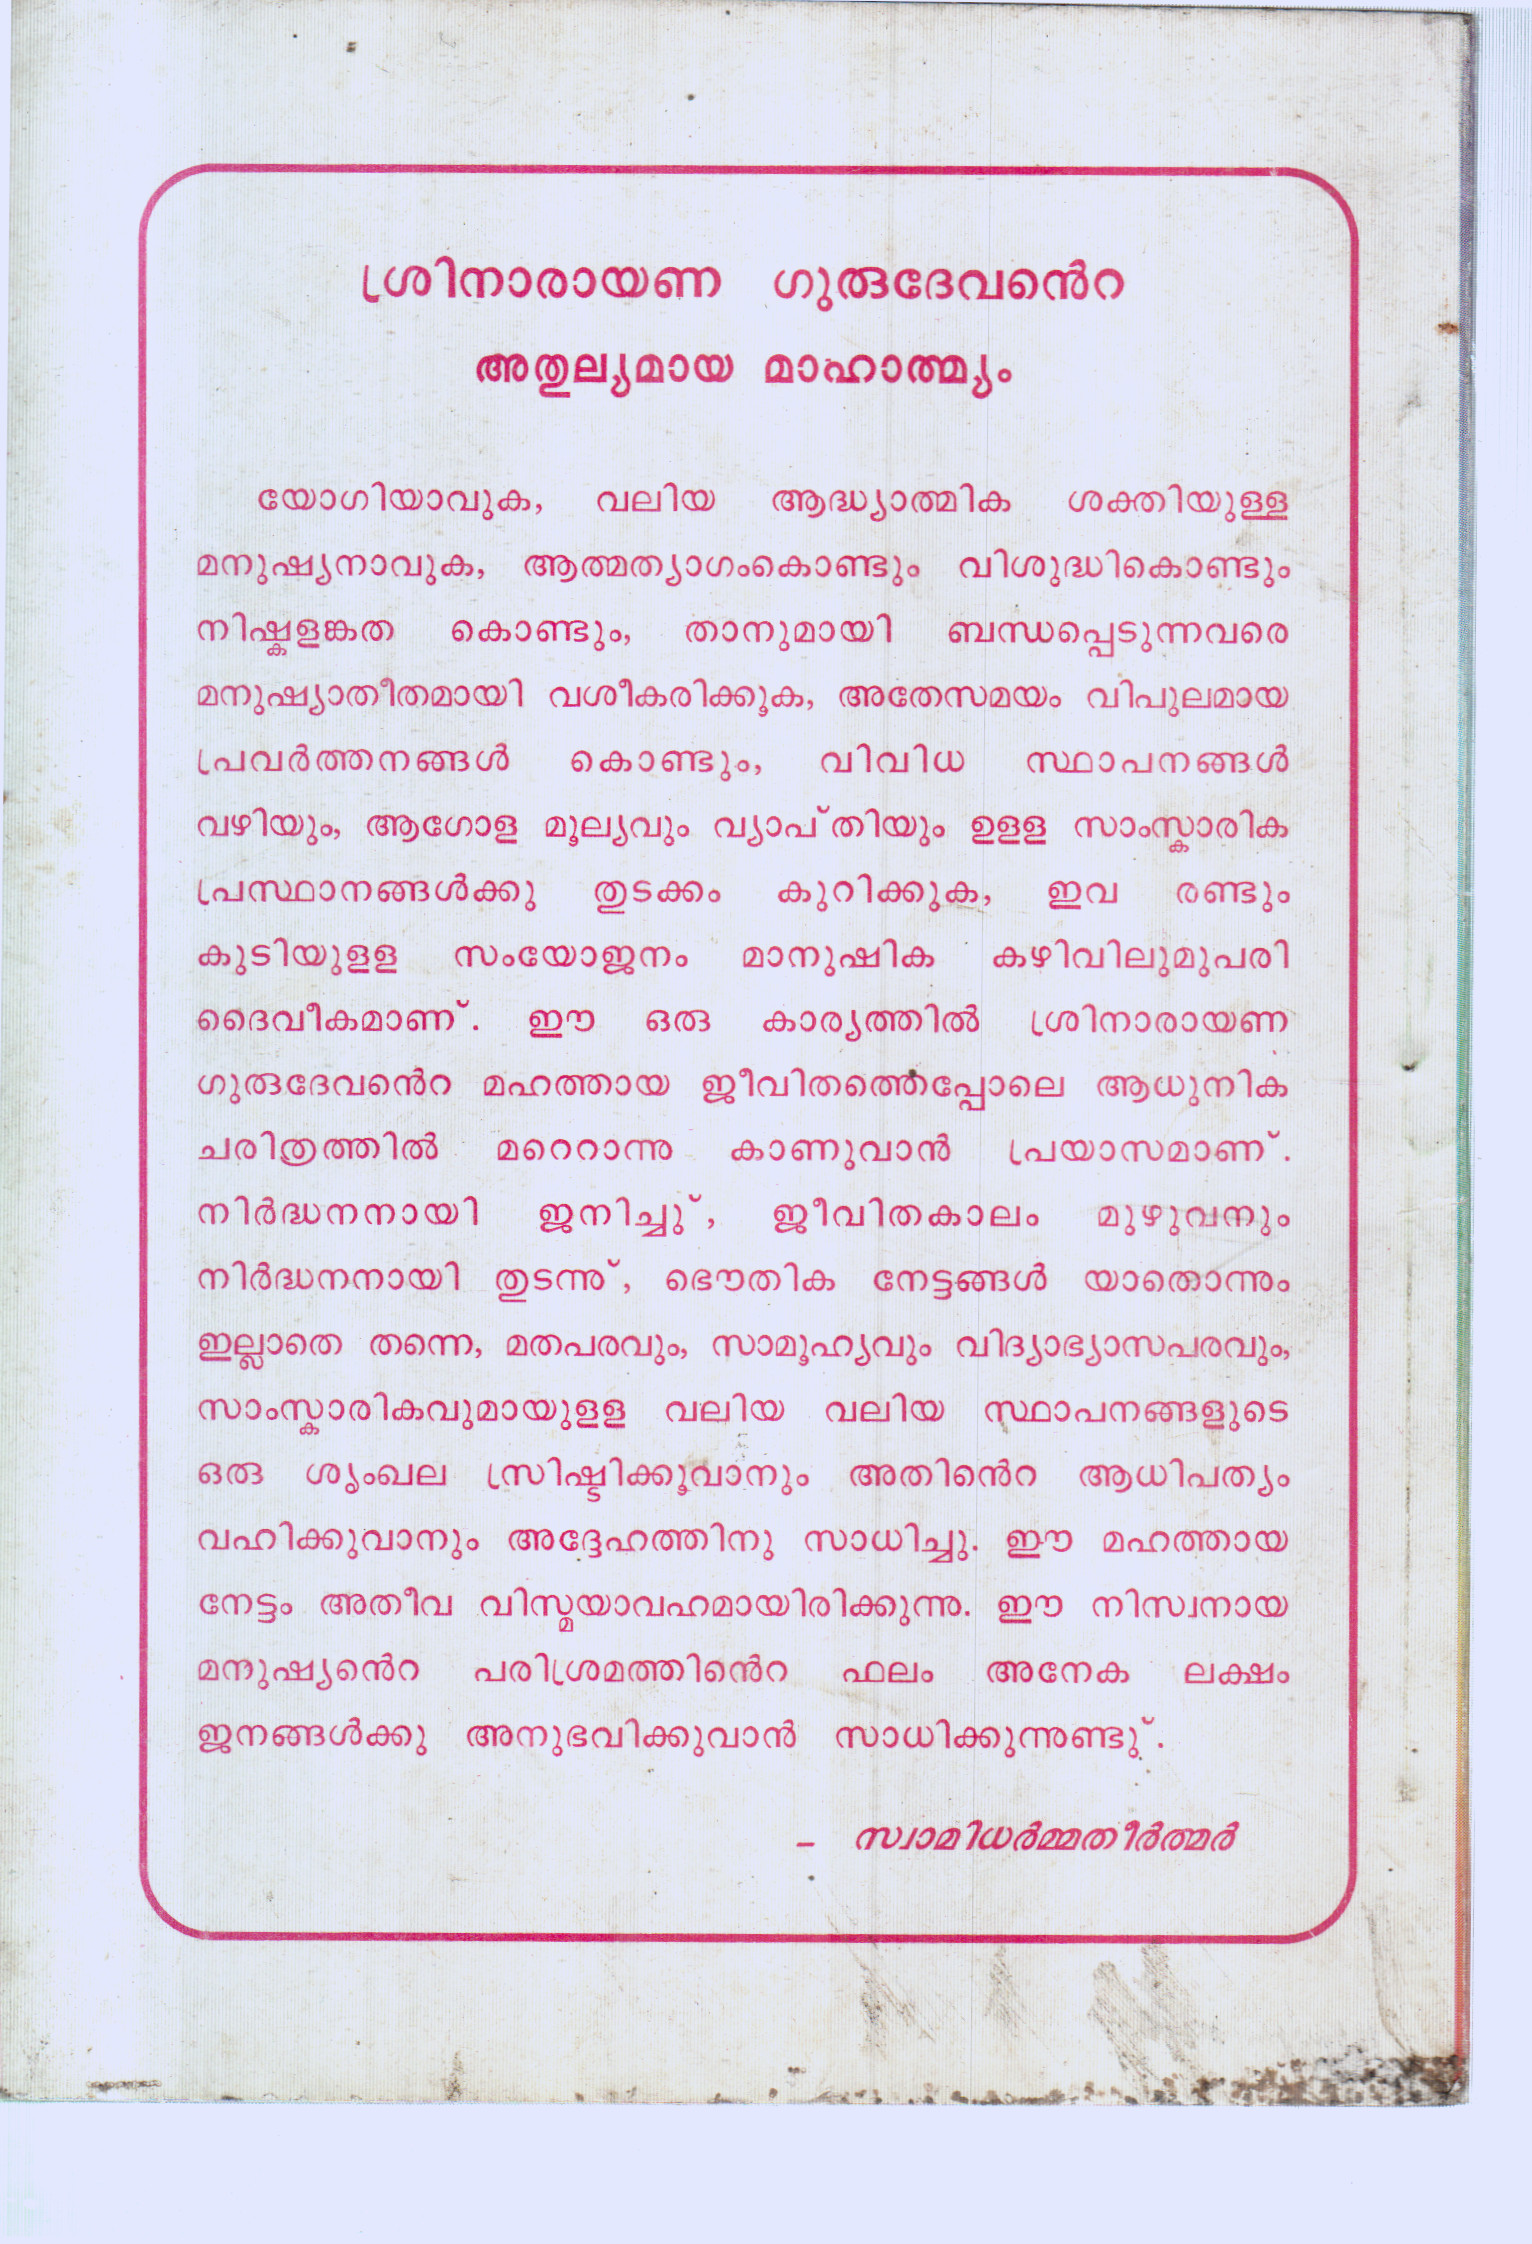 ശ്രിനാരായണ ഗുരുദേവൻെറ
അതുല്യമായ മാഹാത്മ്യം
യോഗിയാവുക, വലിയ ആദ്ധ്യാത്മിക ശക്തിയുള്ള
മനുഷ്യനാവുക, ആത്മത്യാഗംകൊണ്ടും വിശുദ്ധികൊണ്ടും
നിഷ്കളങ്കത കൊണ്ടും, താനുമായി ബന്ധപ്പെടുന്നവരെ
മനുഷ്യാതീതമായി വശീകരിക്കൂക, അതേസമയം വിപുലമായ
പ്രവർത്തനങ്ങൾ കൊണ്ടും, വിവിധ സ്ഥാപനങ്ങൾ
വഴിയും, ആഗോള മൂല്യവും വ്യാപ്തിയും ഉളള സാംസ്കാരിക
പ്രസ്ഥാനങ്ങൾക്കു തുടക്കം കുറിക്കുക, ഇവ രണ്ടും
കുടിയുളള സംയോജനം മാനുഷിക കഴിവിലുമുപരി
ദൈവീകമാണ്. ഈ ഒരു കാര്യത്തിൽ ശ്രിനാരായണ
ഗുരുദേവൻെറ മഹത്തായ ജീവിതത്തെപ്പോലെ ആധുനിക
ചരിത്രത്തിൽ മറെറാന്നു കാണുവാൻ പ്രയാസമാണ്.
നിർദ്ധനനായി ജനിച്ചു്, ജീവിതകാലം മുഴുവനും
നിർദ്ധനനായി തുടന്നു്, ഭൌതിക നേട്ടങ്ങൾ യാതൊന്നും
ഇല്ലാതെ തന്നെ, മതപരവും, സാമൂഹ്യവും വിദ്യാഭ്യാസപരവും,
സാംസ്കാരികവുമായുളള വലിയ വലിയ സ്ഥാപനങ്ങളുടെ
ഒരു ശൃംഖല സ്രിഷ്ടിക്കൂവാനും അതിൻെറ ആധിപത്യം
വഹിക്കുവാനും അദ്ദേഹത്തിനു സാധിച്ചു. ഈ മഹത്തായ
നേട്ടം അതീവ വിസ്മയാവഹമായിരിക്കുന്നു. ഈ നിസ്വനായ
മനുഷ്യൻെറ പരിശ്രമത്തിൻെറ ഫലം അനേക ലക്ഷം
ജനങ്ങൾക്കു അനുഭവിക്കുവാൻ സാധിക്കുന്നുണ്ടു്.
– സ്വാമിധർമ്മതീർത്ഥർ